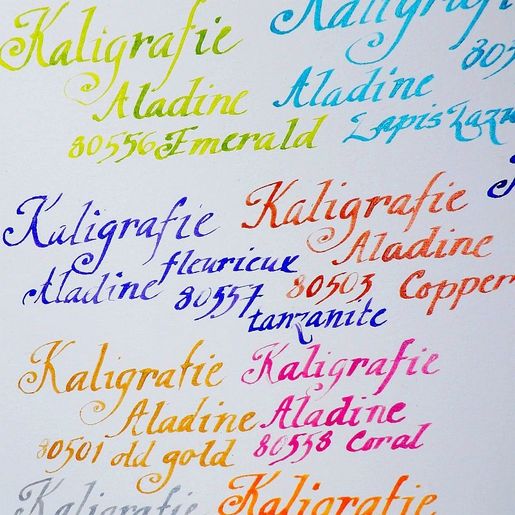 Kaligrafie
Aladine
80556 Emerald
Kaligrafie
Aladine
Lapis
Kaligrafie
fleurieux
Aladine 80557
tanzanite
Kaligrafie
Aladine
80503 Copper
Kaligrafie
Aladine
80501 old gold
Kaligrafie
Aladine
80558 coral
Kaligrafie
Kaligrafie